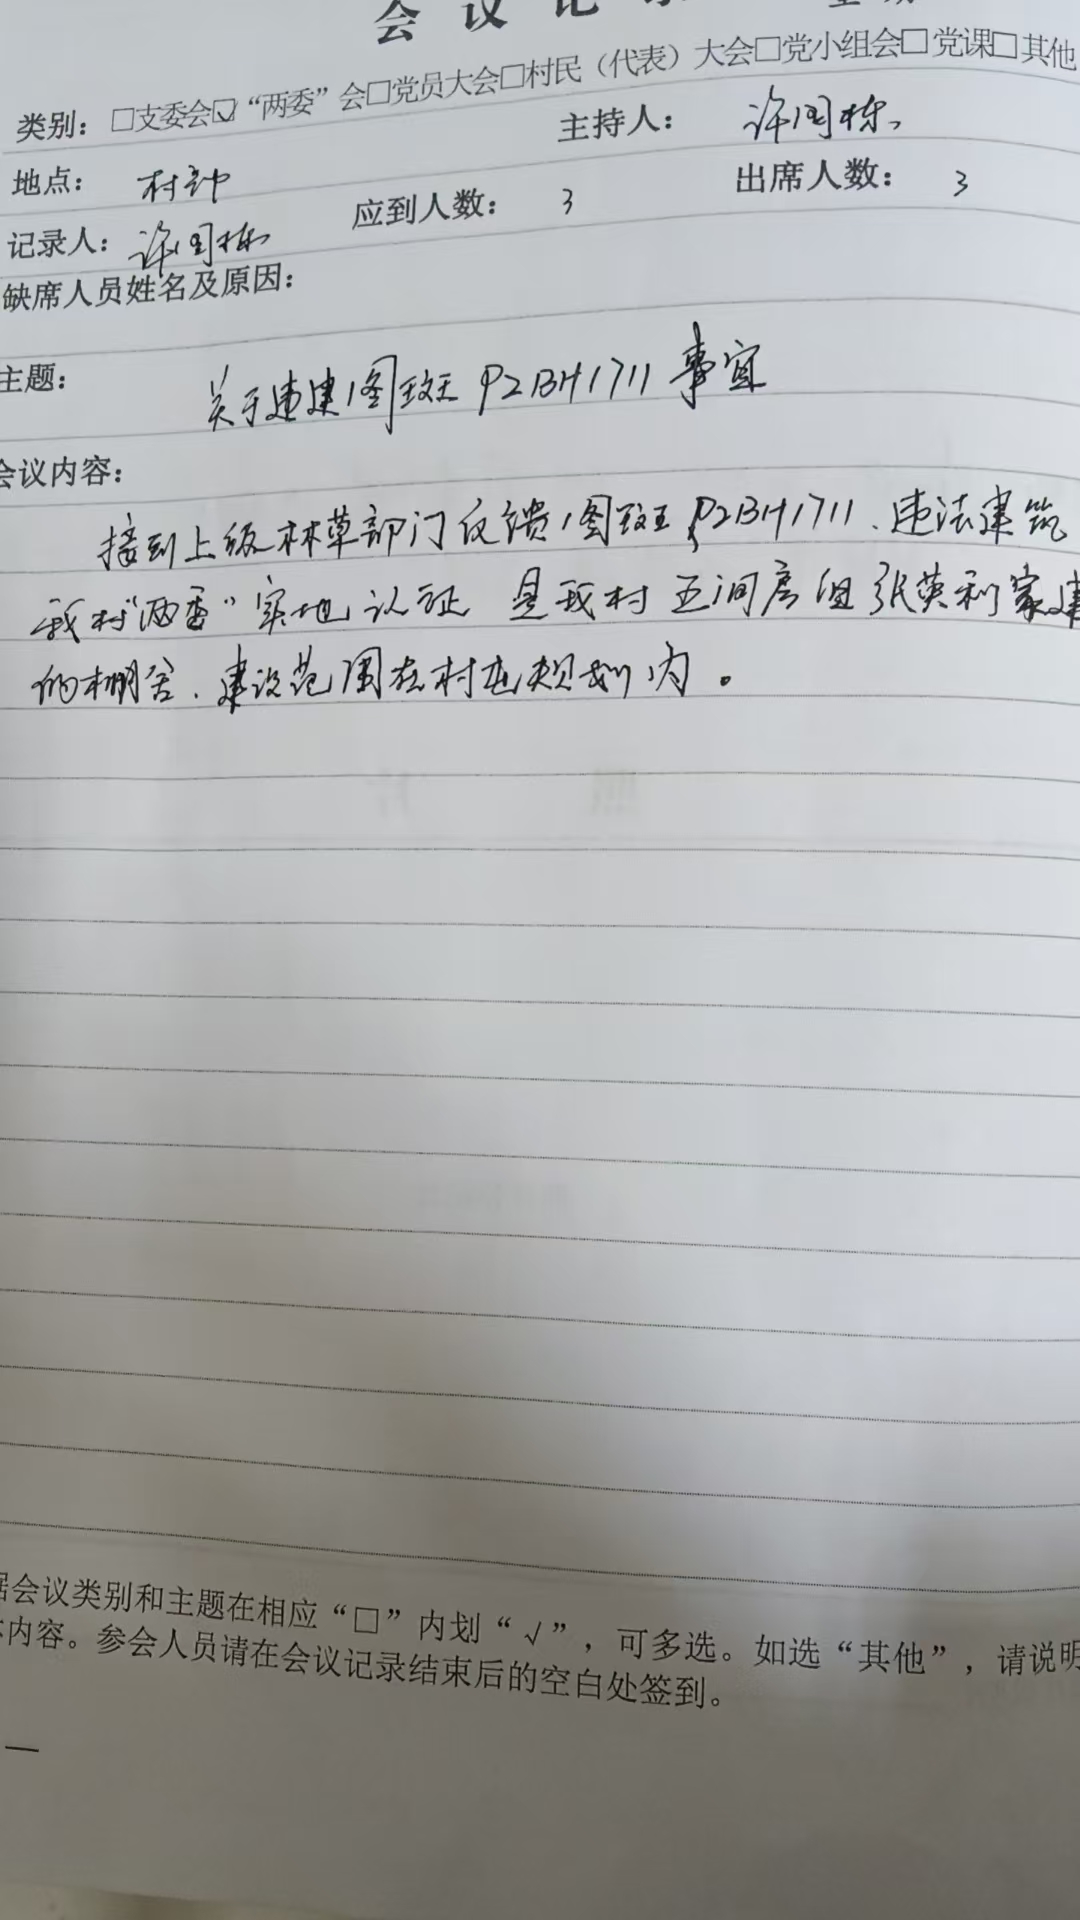 会议记录
类别：□支委会☑“两委”会□党员大会□村民（代表）大会□党小组会□党课□其他
主持人：许国栋
地点：村部
应到人数：3 出席人数：3
记录人：许国栋
缺席人员姓名及原因：
主题：关于违建图斑P2BH1711事宜
会议内容：
接到上级林草部门反馈图斑P2BH1711、违法建筑
我村“两委”实地认证 是我村五间房组张英利家建
的棚舍、建设范围在村庄规划内。
据会议类别和主题在相应“□”内划“√”，可多选。如选“其他”，请说明
内容。参会人员请在会议记录结束后的空白处签到。